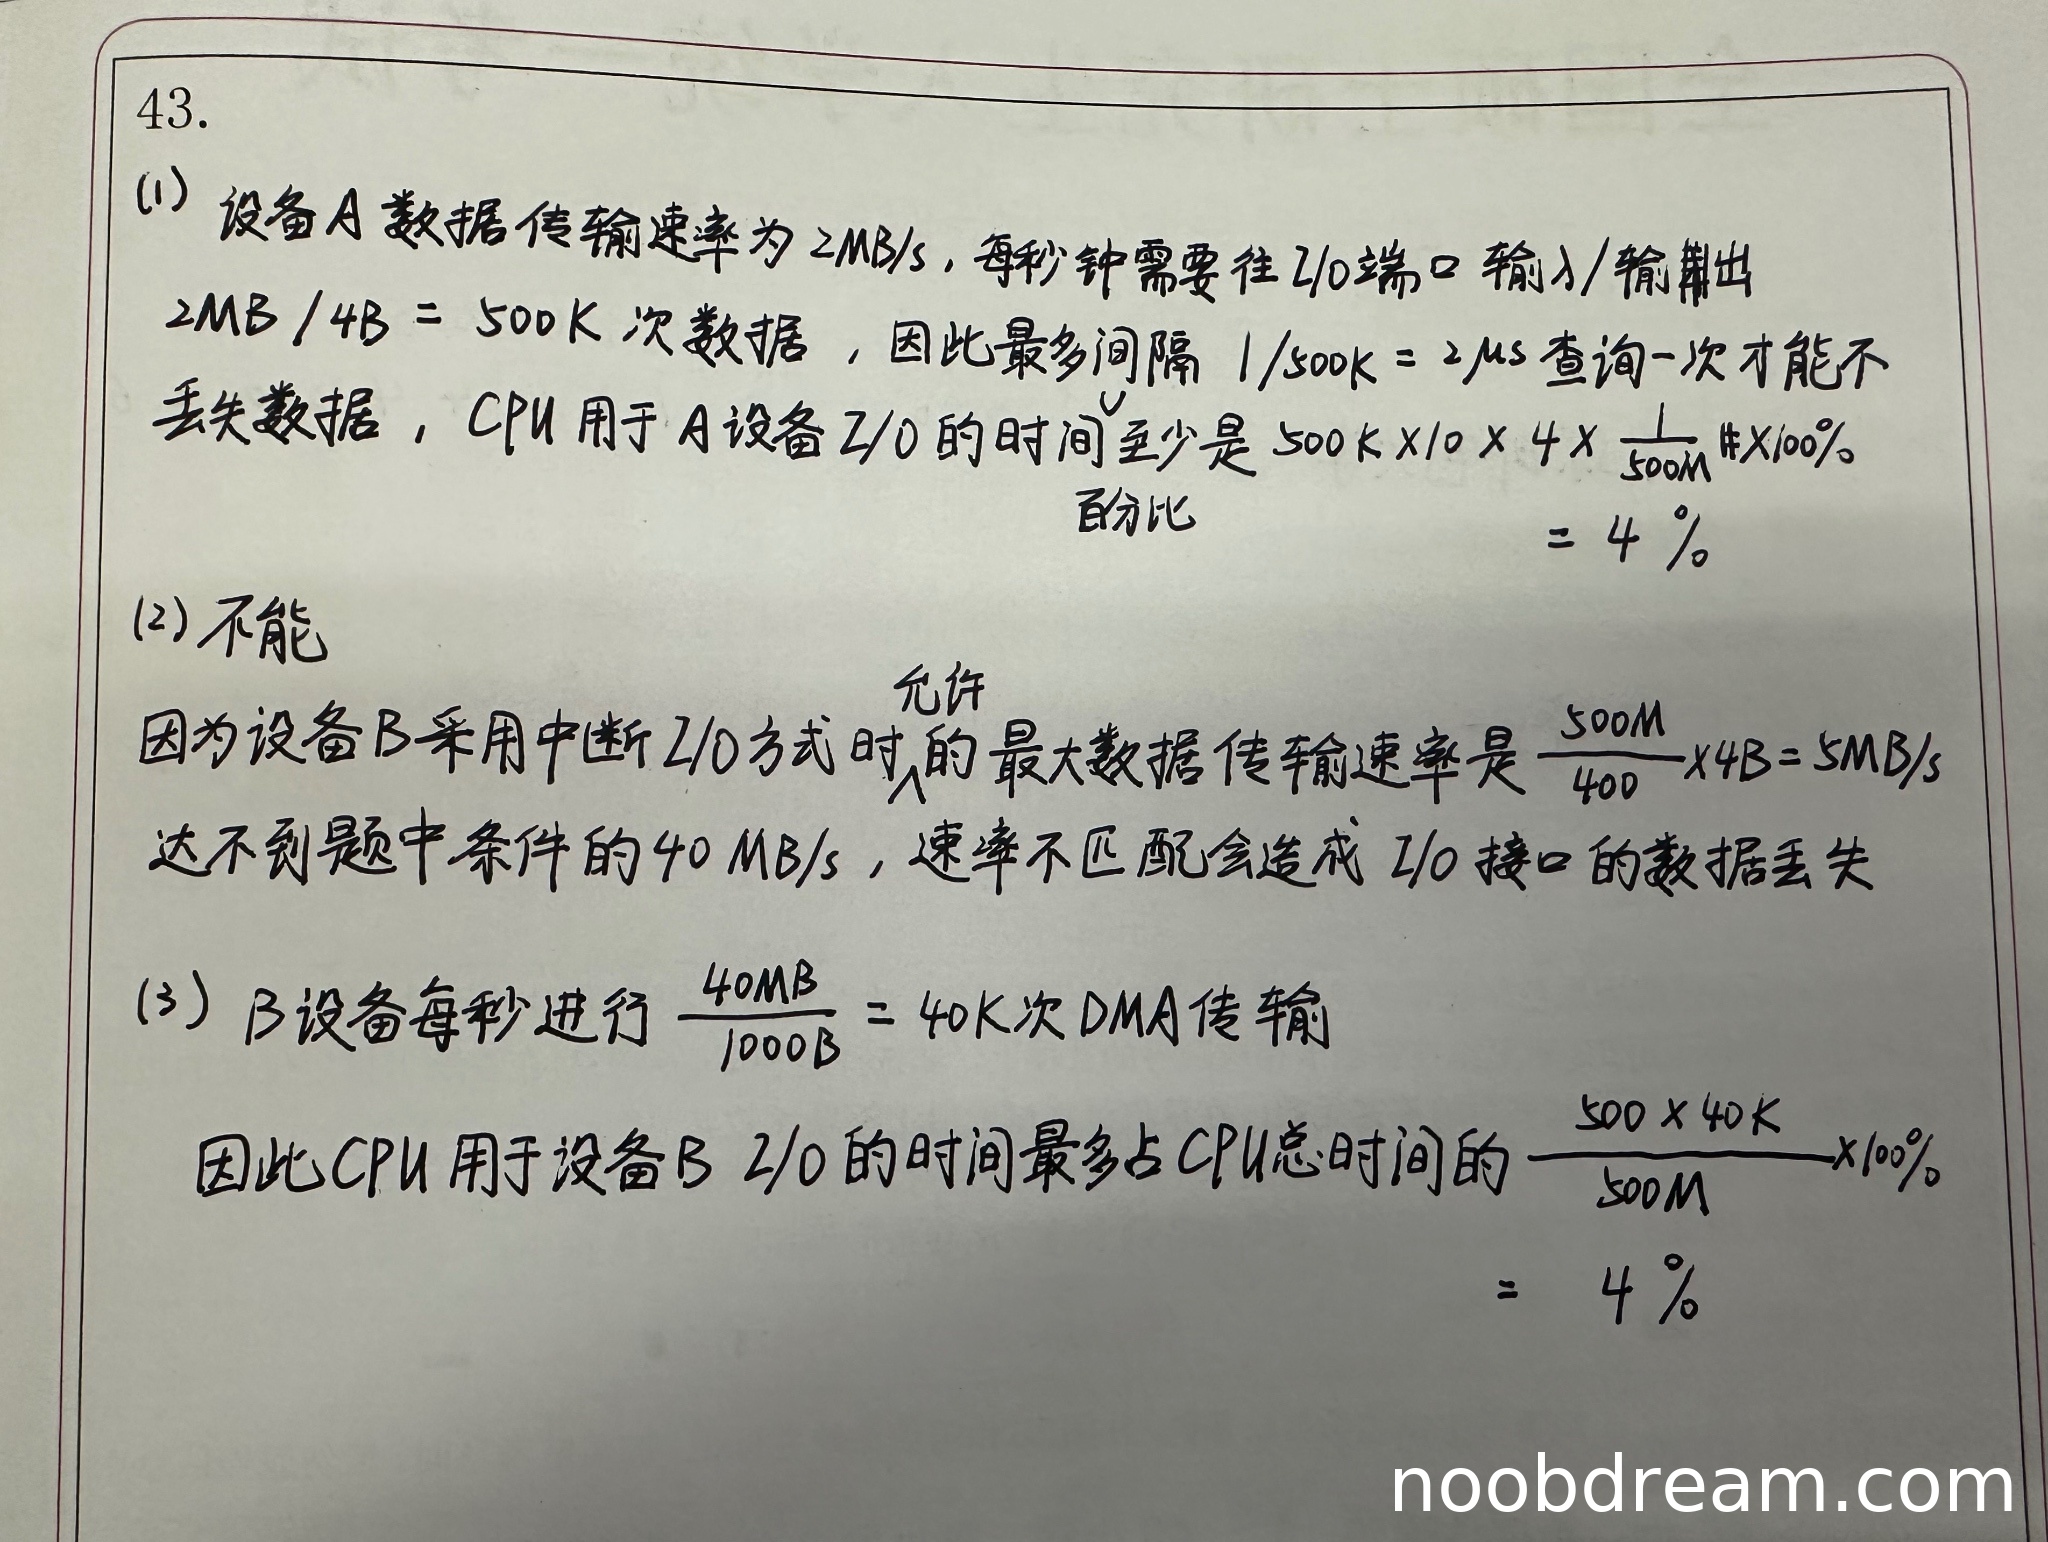 43.
(1) 设备A数据传输速率为2MB/s，每秒钟需要往I/O端口输入/输出
2MB/4B = 500K 次数据，因此最多间隔 1/500K = 2μs 查询一次才能不
丢失数据，CPU用于A设备I/O的时间百分比至少是 500K×10×4×1/500M×100%
= 4%
(2) 不能
因为设备B采用中断I/O方式时允许的最大数据传输速率是 500M/400 ×4B=5MB/s
达不到题中条件的40MB/s，速率不匹配会造成I/O接口的数据丢失
(3) B设备每秒进行 40MB/1000B = 40K次DMA传输
因此CPU用于设备B I/O的时间最多占CPU总时间的 500×40K/500M ×100%
= 4%
noobdream.com